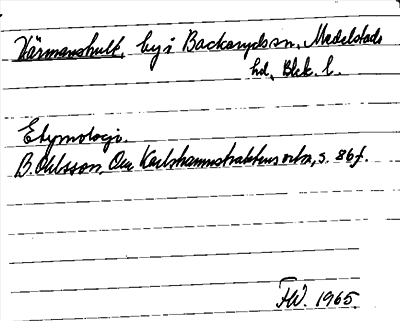 Härmanshult, by i Backaryds sn, Medelstads
hd, Blek. l.
Etymologi.
B. Ohlsson, Om Karlshamnstraktens ortn, s. 86 f.
FW. 1965